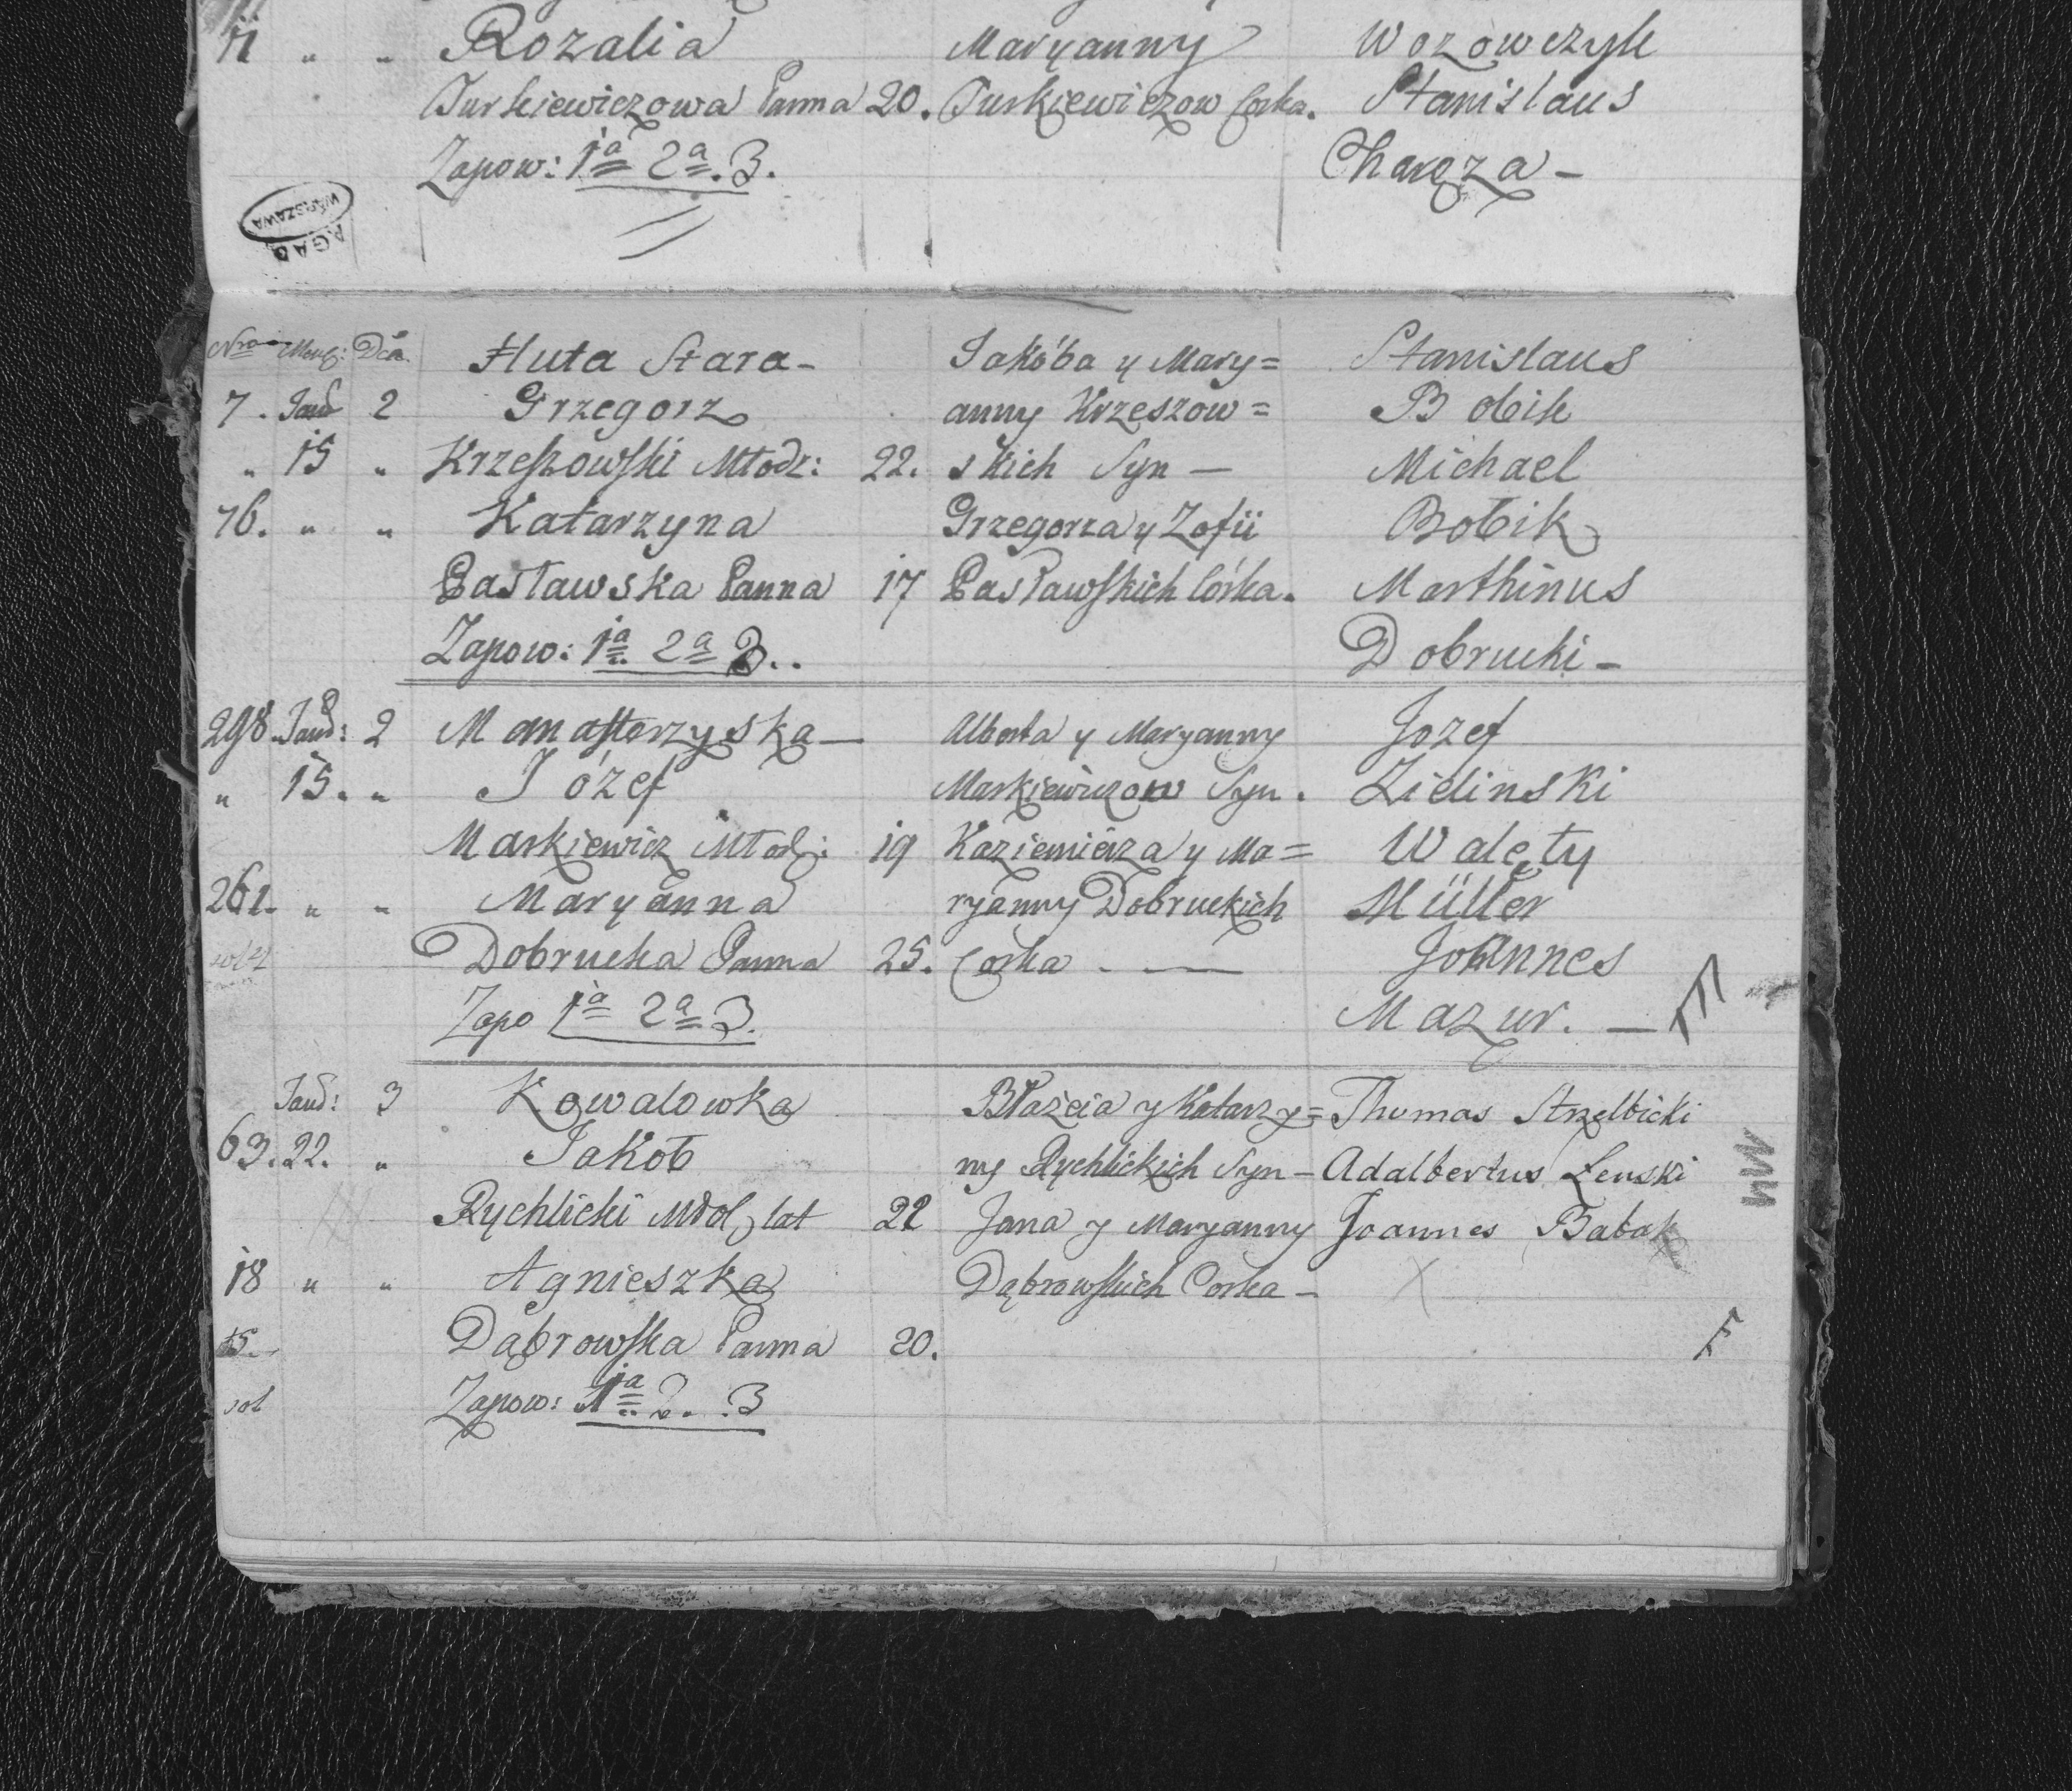 11 " " Rozalia Maryanny Wozowczyk
Turkiewiczowa Panna 20. Turkiewiczow Corka. Stanislaus
Zapow: 1a 2a. 3. Charęza -
AGAD
WARSZAWA
Nro Mens: Dca Huta Stara - Jakóba y Mary= Stanislaus
7. Janr 2 Grzegorz anny Krzeszow= Bobik
" 15 " Krzeszowski Młodz: 22. skich Syn — Michael
76. " " Katarzyna Grzegorza y Zofii Bobik
Pasławska Panna 17 Pasławskich Córka. Marthinus
Zapow: 1a 2a 3.. Dobrucki -
298. Janr: 2 Manasterzyska — Alberta y Maryanny Jozef
" 15. " Józef Markiewiczow Syn. Zielinski
Markiewicz Młodz: 19 Kaziemiérza y Ma= Walęty
261. " " Maryanna ryanny Dobruckich Müller
Dobrucka Panna 25. Corka - — Joannes
Zapo 1a 2a 3. Mazur. —
Janr: 3 Kowalowka Błażeia y Katarzy= Thomas Strzelbicki
63. 22. " Jakób ny Rychlickich Syn - Adalbertus Łenski
Rychlicki Młodz lat 22 Jana y Maryanny Joannes Babak
18 " " Agnieszka Dąbrowskich Corka - X
15. Dąbrowska Panna 20. F
sol Zapow: 1a 2. .3